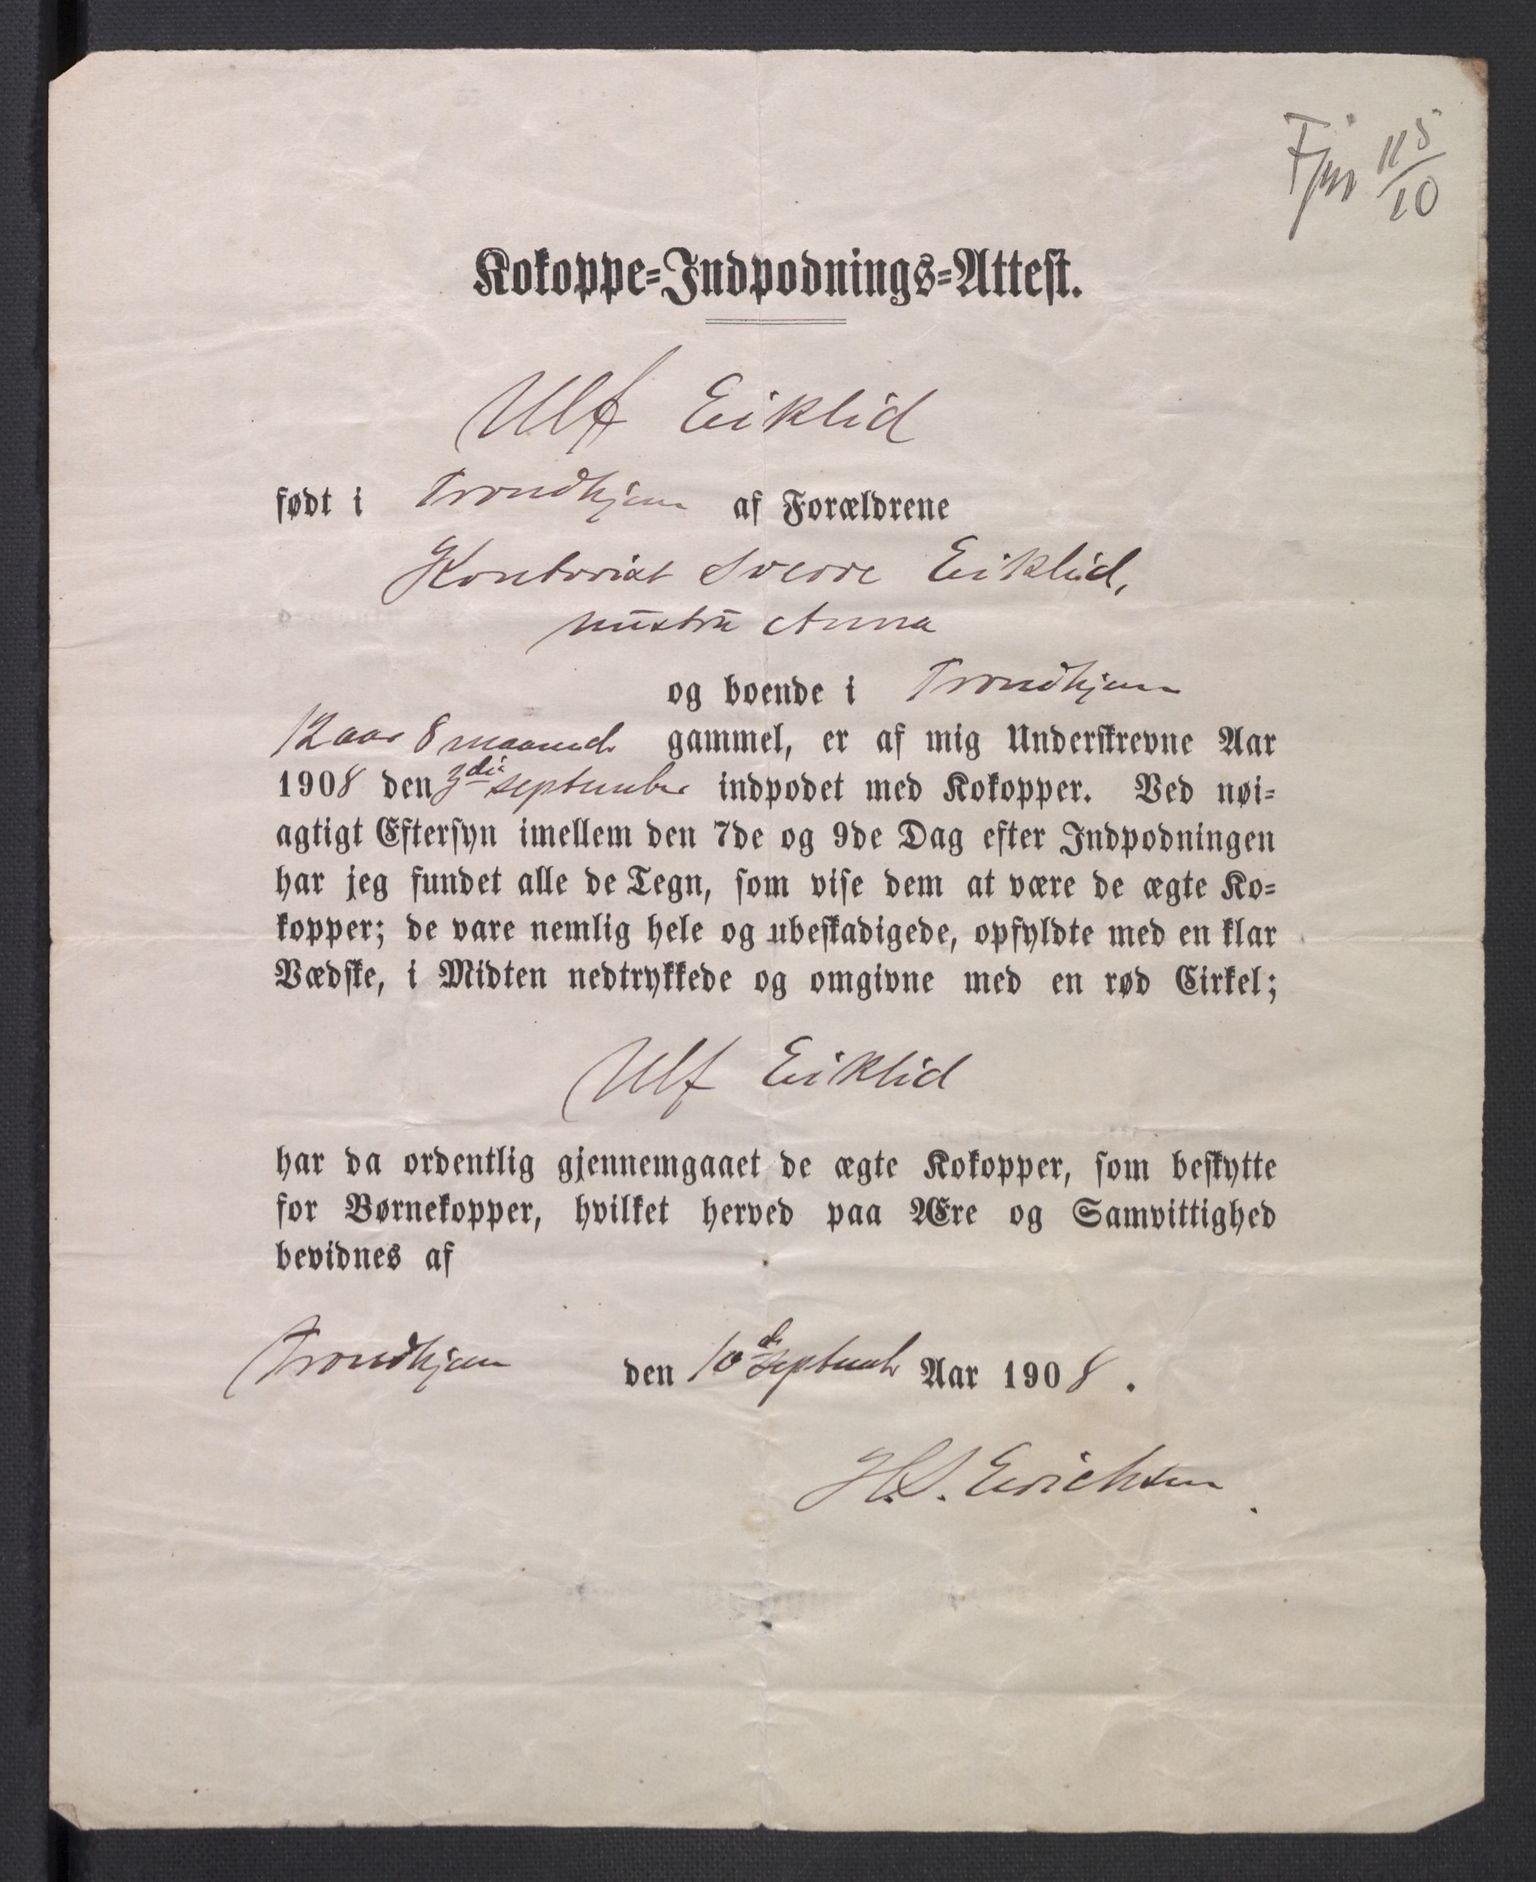 115/10
Kokoppe-Indpodnings-Attest.
Ulf Eiklid
født i Trondhjem af Forældrene
Kontorist Sverre Eiklid,
hustru Anna
og boende i Trondhjem
12 aar 8 maaned. gammel, er af mig Underskrevne Aar
1908 den 3die september indpodet med Kokopper. Ved nøi-
agtigt Eftersyn imellem den 7de og 9de Dag efter Indpodningen
har jeg fundet alle de Tegn, som vise dem at være de ægte Ko-
kopper; de vare nemlig hele og ubeskadigede, opfyldte med en klar
Vædske, i Midten nedtrykkede og omgivne med en rød Cirkel;
Ulf Eiklid
har da ordentlig gjennemgaaet de ægte Kokopper, som beskytte
for Børnekopper, hvilket herved paa Ære og Samvittighed
bevidnes af
Trondhjem den 10de septemb Aar 1908.
H.S. Erichsen.